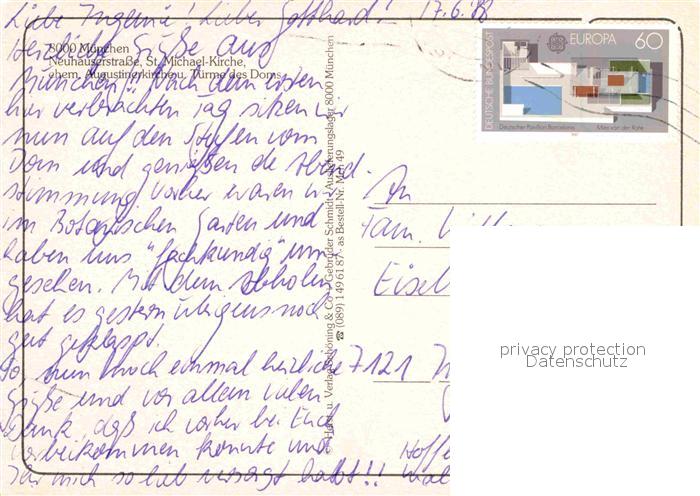 Liebe Ingeme! Lieber Gotthard! 17.6.88
Herzliche Grüße aus
München!! Nach dem ersten
hier verbrachten Tag sitzen wir
nun auf den Stufen vom
Dom und genießen die Abend-
stimmung. Vorher waren wir
im Botanischen Garten und
haben uns "fachkundig" um
gesehen. Mit dem Abholen
hat es gestern übrigens noch
gut geklappt.
So, nun noch einmal herzliche
Grüße und vor allem vielen
Dank, daß ich vorher bei Euch
vorbeikommen konnte und
Ihr mich so lieb versorgt habt!!
8000 München
Neuhauserstraße, St. Michael-Kirche,
ehem. Augustinerkirche u. Türme des Doms
Schöning & Co + Gebrüder Schmidt · Auslieferungslager 8000 München
☎ (089) 1 49 61 87 · as Bestell-Nr. Mch 49
DEUTSCHE BUNDESPOST
EUROPA 60
Deutscher Pavillon Barcelona
Mies van der Rohe
An
Fam.
7121
privacy protection
Datenschutz